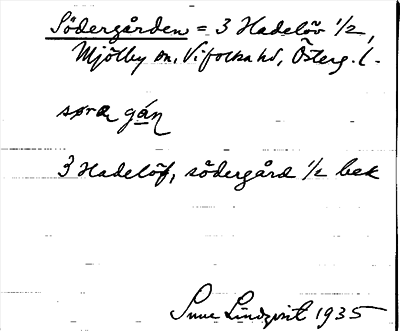 Södergården = 3 Hadelöv 1/2,
Mjölby sn, Vifolka hd, Österg. l.
søræ gán
3 Hadelöf, södergård 1/2 bek
Sune Lindqvist 1935